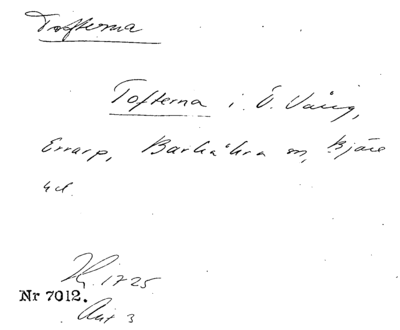 Tofterna
Tofterna i Ö. Vång,
Errarp, Barkåkra sn, Bjäre
hd.
Hj. 1725
Nr 7012.
Akt 3